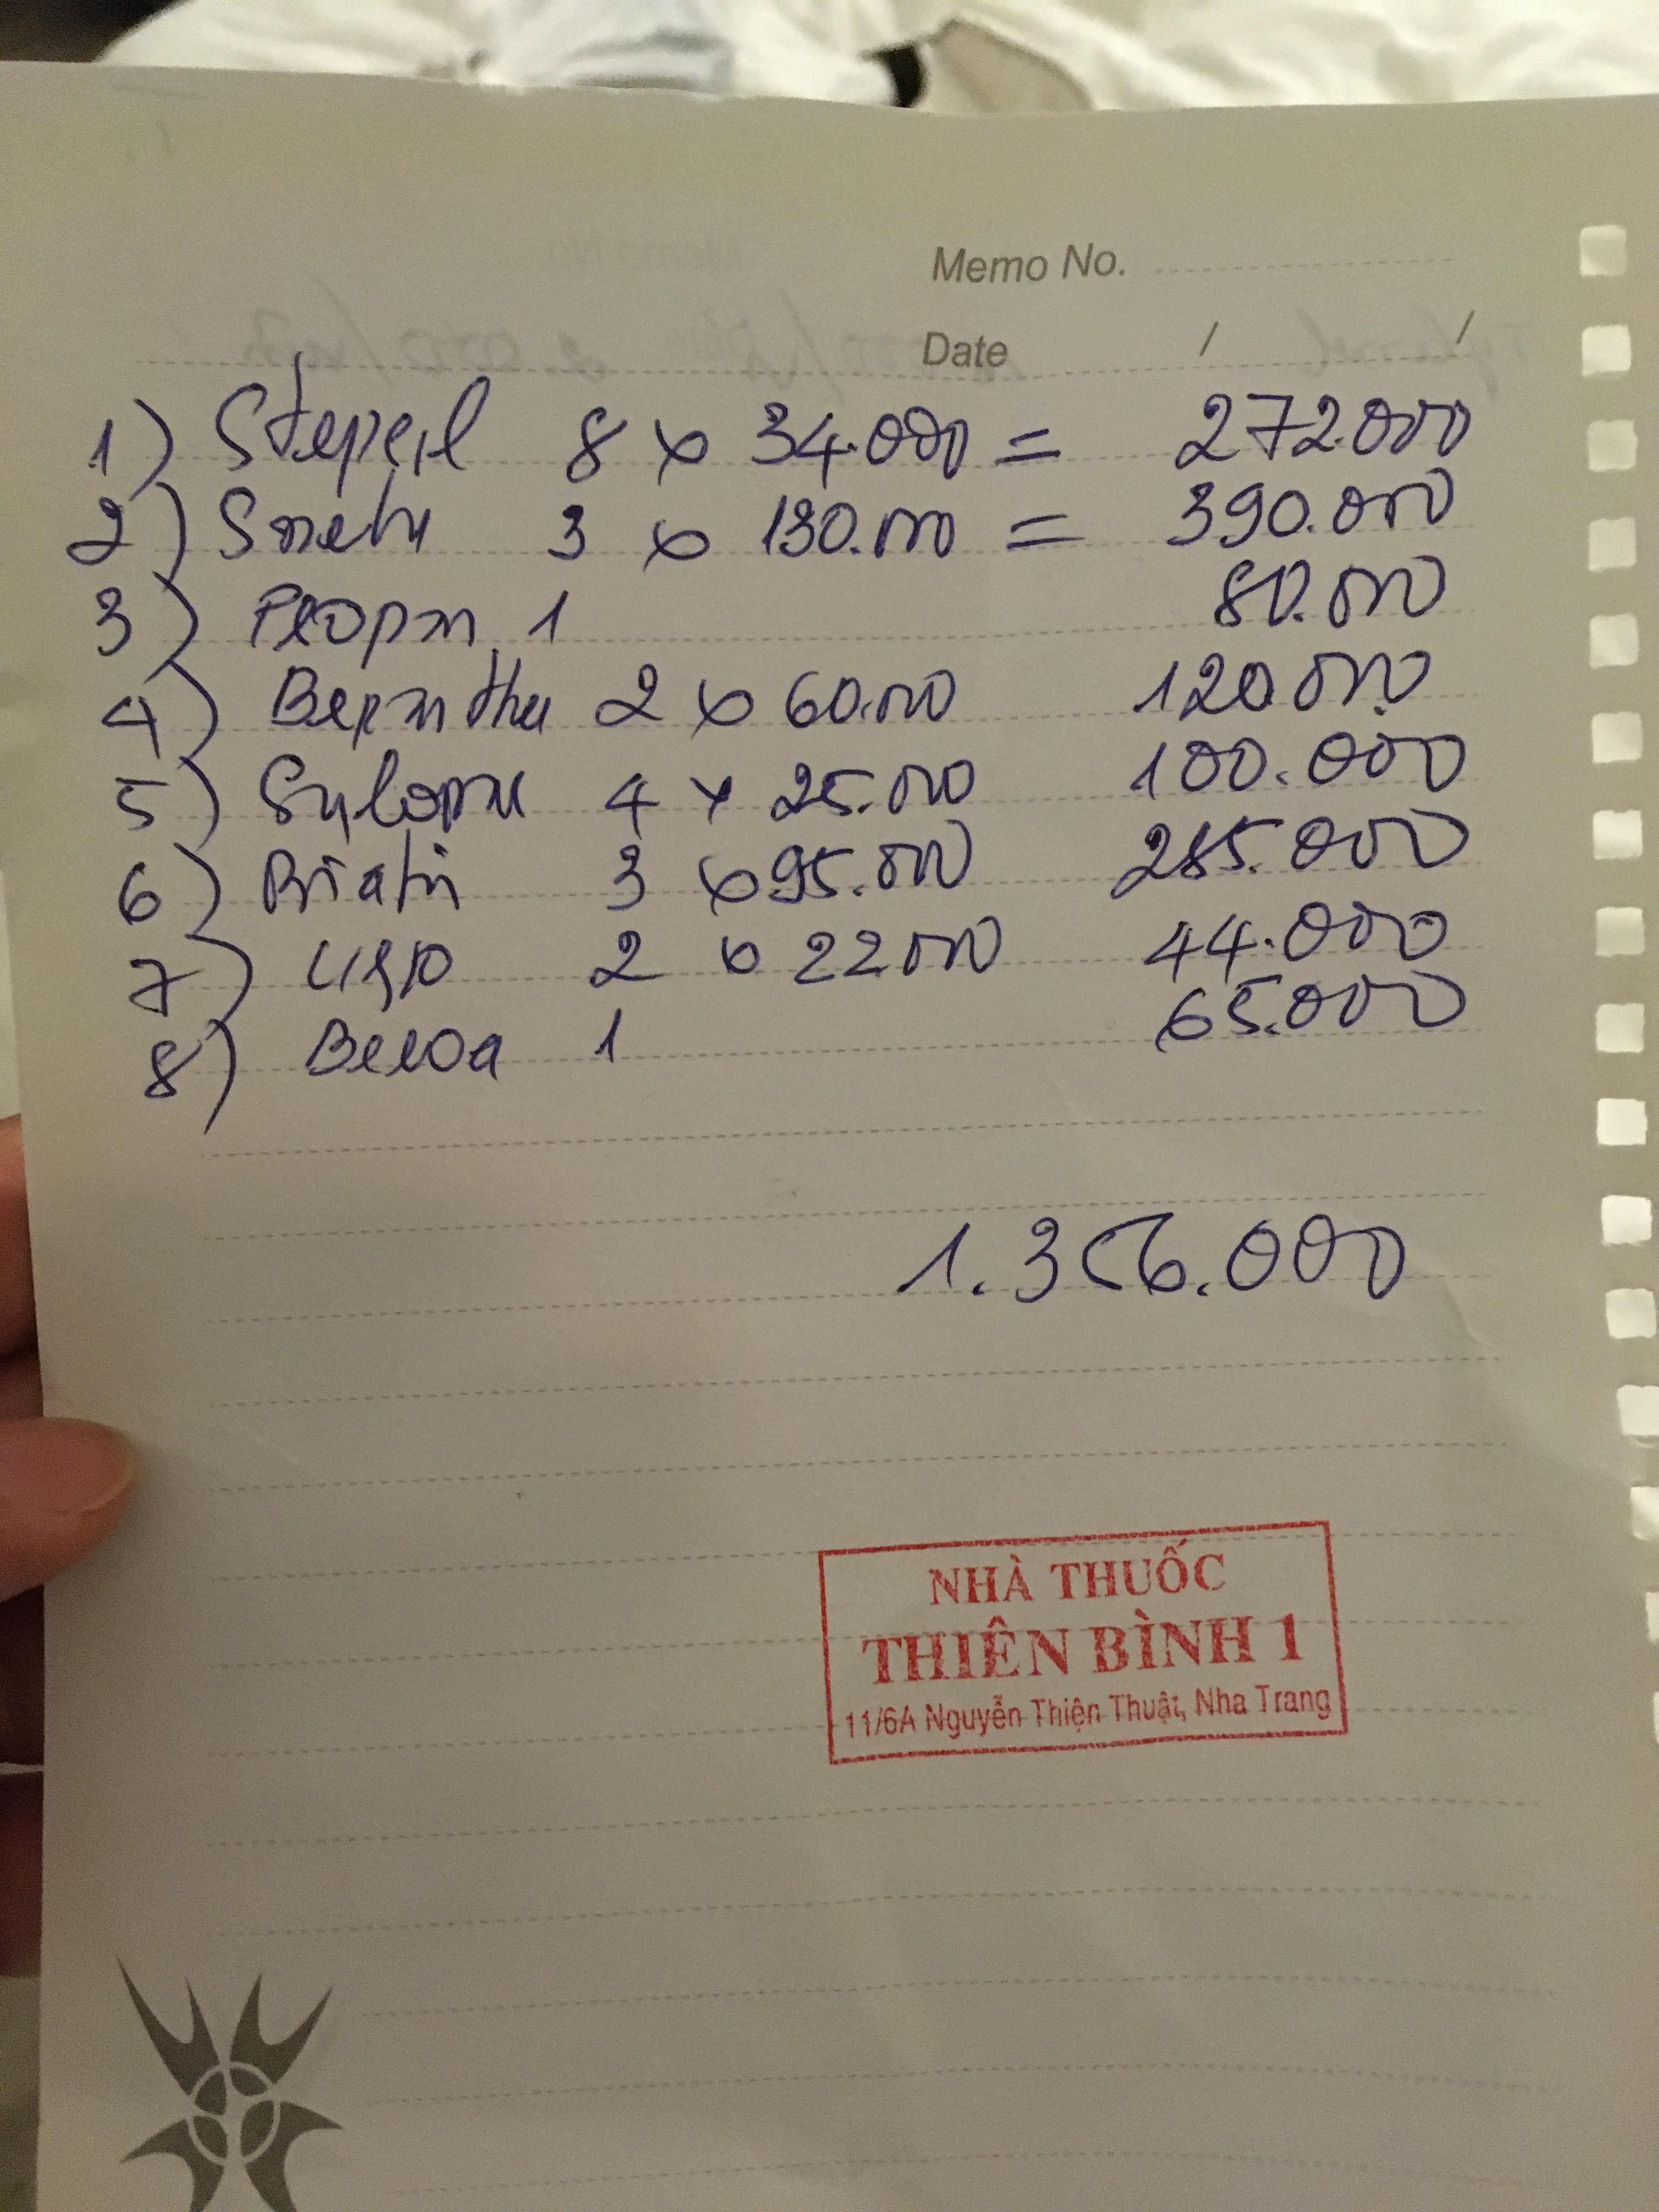 Memo No.
Date / /
1) Stepcil 8 x 34.000 = 272.000
2) 3 x 130.000 = 390.000
3) 1 80.000
4) 2 x 60.000 120.000
5) 4 x 25.000 100.000
6) 3 x 95.000 285.000
7) 2 x 22000 44.000
8) 1 65.000
1.356.000
NHÀ THUỐC
THIÊN BÌNH 1
11/6A Nguyễn Thiện Thuật, Nha Trang